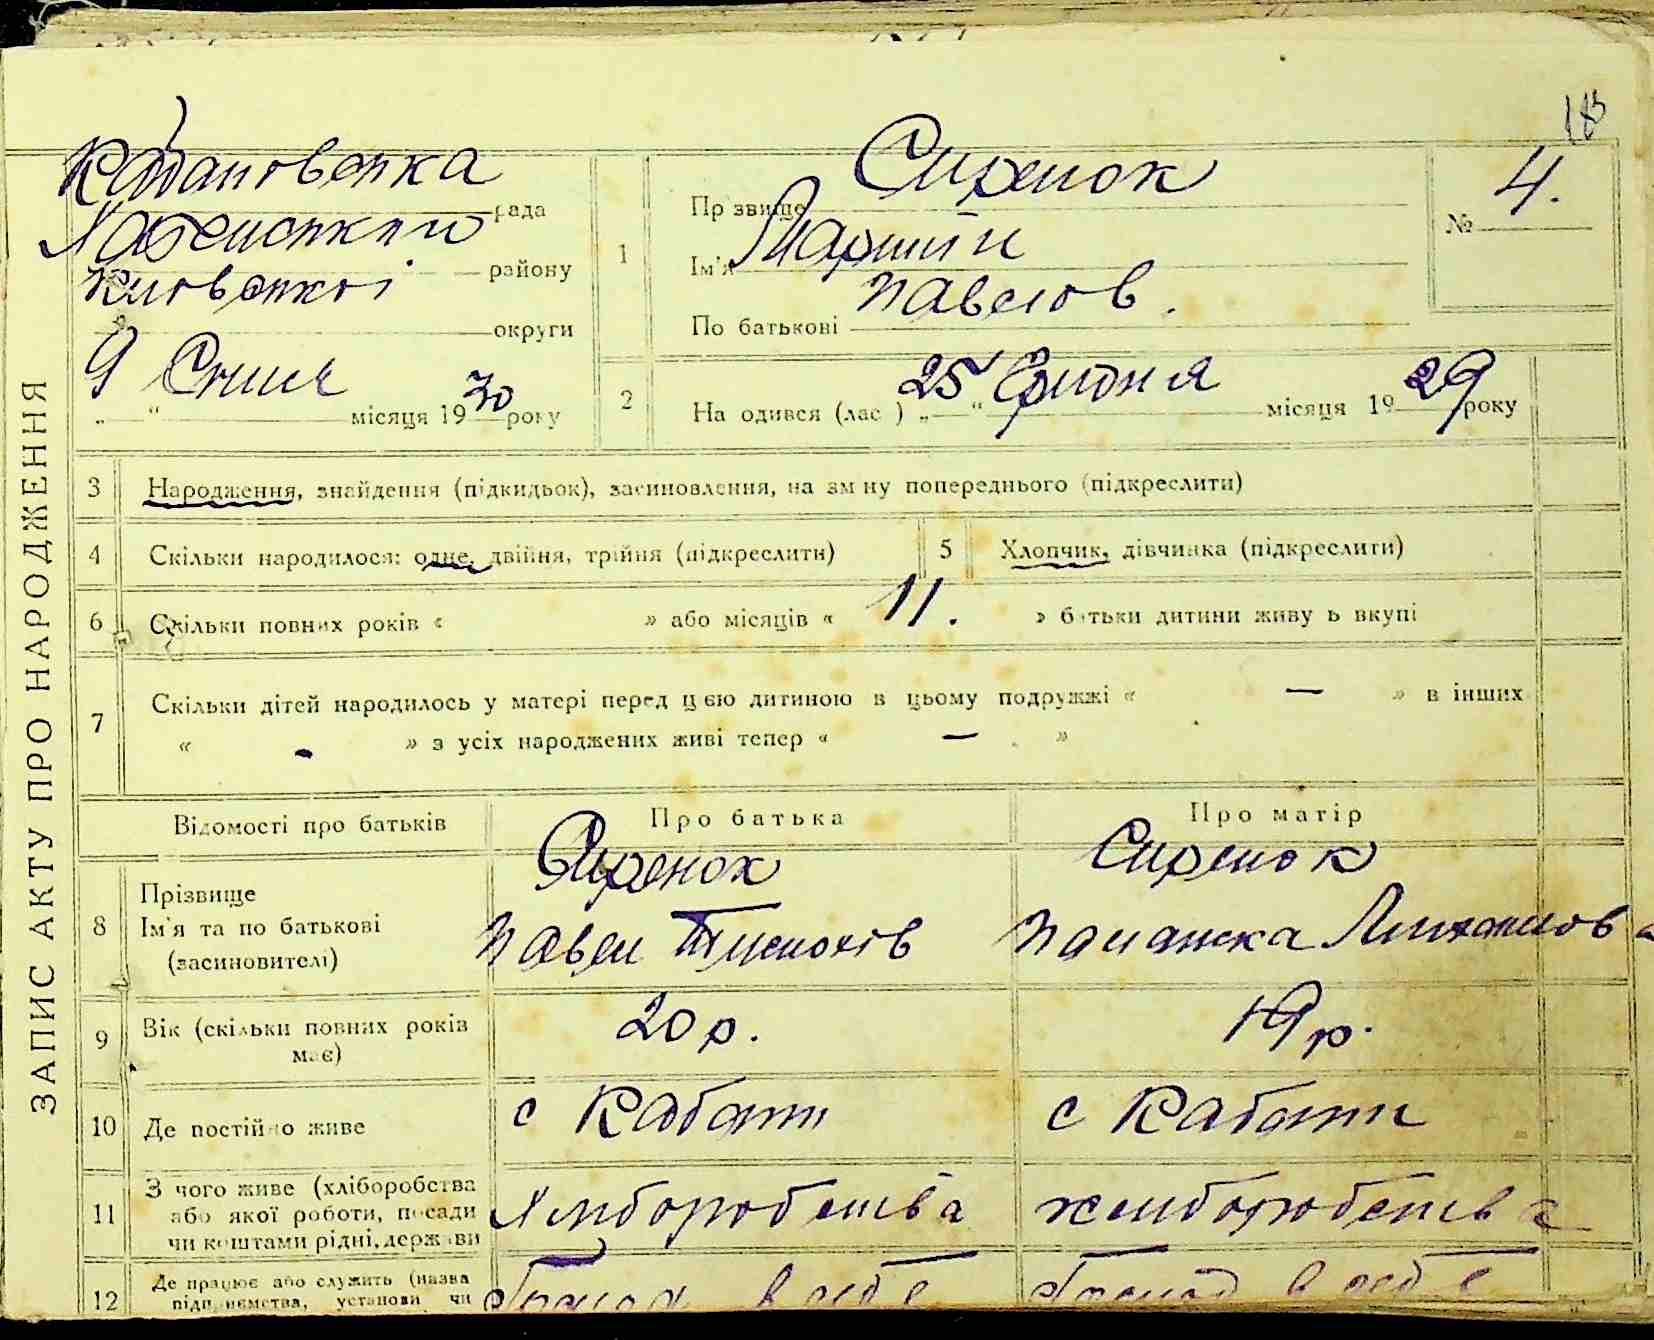 18
ЗАПИС АКТУ ПРО НАРОДЖЕННЯ
рада
району
Київської
округи
9 Січня місяця 1930 року
1
Прізвище Сиренок
Ім'я
По батькові Павлов.
№ 4.
2 На одився (лас ) „25“ Грудня місяця 1929 року
3 Народження, знайдення (підкидьок), засиновлення, на зм ну попереднього (підкреслити)
4 Скільки народилося: одне, двійня, трійня (підкреслити)
5 Хлопчик, дівчинка (підкреслити)
6 Скільки повних років « » або місяців « 11. » батьки дитини живу ь вкупі
7 Скільки дітей народилось у матері перед цією дитиною в цьому подружжі « — » в інших
« - » з усіх народжених живі тепер « — »
Відомості про батьків Про батька Про матір
8 Прізвище Сиренок Сиренок
Ім'я та по батькові Павел
(засиновителі)
9 Вік (скільки повних років має) 20 р. 19 р.
10 Де постійно живе с Кабати с Кабати
11 З чого живе (хліборобства
або якої роботи, посади
чи коштами рідні, держави Хліборобства хліборобства
12 Де працює або служить (назва
підприємства, установи чи